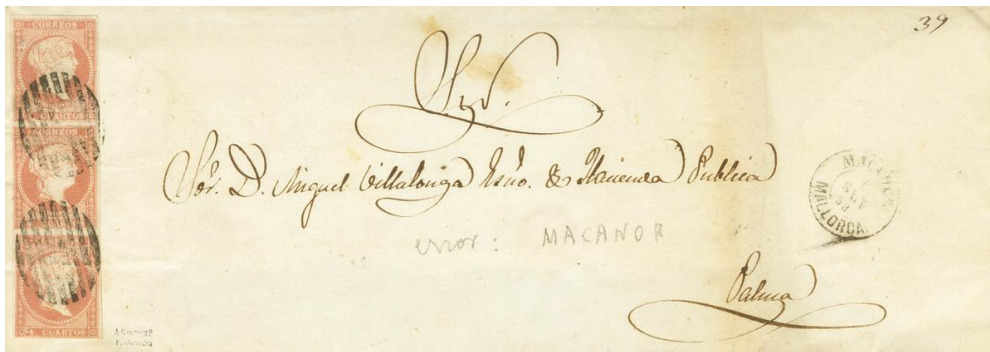 CORREOS
CUARTOS
CORREOS
4 CUARTOS
39
S.N.
Sor. D. Miguel Villalonga Esño. de Hacienda Publica
MALLORCA
SET
58
error: MACANOR
Palma